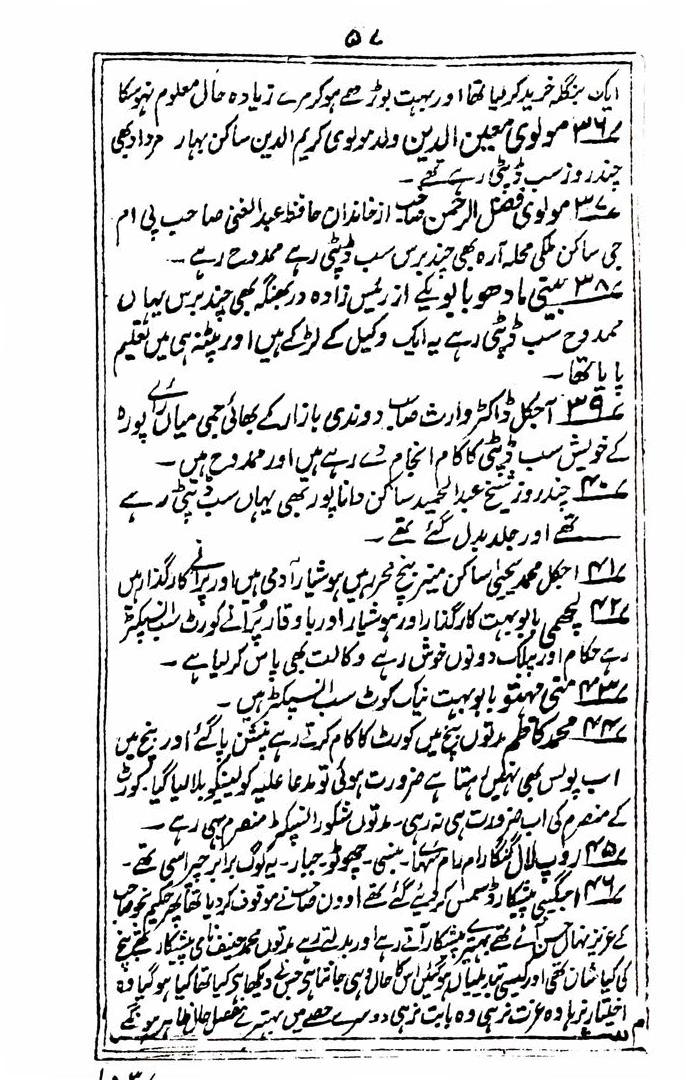 ۵۷
ایک بنگلہ خرید کر لیا تھا اور بہت بوڑھے ہو کر مرے زیادہ حال معلوم نہو سکا
۳۶ مولوی معین الدین ولد مولوی کریم الدین ساکن بہار مرداد بھی
چند روز سب ڈپٹی رہے تھے۔
۳۷ مولوی فضل الرحمن صاحب از خاندان حافظ عبد الغنی صاحب پی ام
جی ساکن ملکی محلہ آرہ بھی چند برس سب ڈپٹی رہے ممدوح رہے۔
۳۸ بیتی مادھو بابو یکے از رئیس زادہ دربھنگہ بھی چند برس یہاں
ممدوح سب ڈپٹی رہے یہ ایک وکیل کے لڑکے ہیں اور پٹنہ ہی میں تعلیم
پایا تھا۔
۳۹ آجکل ڈاکٹر وارث صاحب دوندی بازار کے بھائی جمی میاں رائے پورہ
کے خویش سب ڈپٹی کا کام انجام دے رہے ہیں اور ممدوح ہیں۔
۴۰ چند روز شیخ عبد الحمید ساکن داناپور بھی یہاں سب ڈپٹی رہے
تھے اور جلد بدل گئے تھے۔
۴۱ اجکل محمد یحییٰ ساکن میتر پنچ محرر ہیں ہوشیار آدمی ہیں اور پرانے کارگذار ہیں
۴۲ لچھمی بابو بہت کارگذار اور ہوشیار اور باوقار پرانے کورٹ سب انسپکٹر
رہے حکام اور پبلک دونوں خوش رہے وکالت بھی پاس کر لیا ہے۔
۴۳ منی مہنتو بابو بہت نیک کورٹ سب انسپکٹر ہیں۔
۴۴ محمد کاظم مدتوں بنچ میں کورٹ کا کام کرتے رہے پنشن پا گئے اور بنچ میں
اب پولس بھی نہیں رہتا ہے ضرورت ہوئی تو مدعا علیہ کو لینکو بلا لیا گیا۔ کورٹ
کے منصرم کی اب ضرورت ہی نہ رہی۔ مدتوں شکور انسپکٹر منصرم بھی رہے۔
۴۵ روپ لال گنگا رام رام سہا۔ بنسی۔ چھوٹو۔ جبار۔ یہ لوگ برابر چپراسی تھے۔
۴۶ اجگیبی پیشکار ڈسمس کر دیئے گئے تھے اوون صاحب نے موقوف کر دیا تھا پھر حکیم نجو صاحب
کے عزیز نہال حسن آئے تھے بہتیرے پیشکار آتے رہے اور بدلتے رہے مدتوں محمد حنیف ہی پیشکار تھے بنچ
کی کیا شان تھی اور کیسی تبدیلیاں ہو گئیں اس کا حال وہی جانتا ہے جس نے دیکھا ہے کیا تھا کیا ہو گیا وہ
اختیار نہ رہا وہ عزت نرہی وہ بابت نرہی دوسرے حصے میں بہتیرے مفصل حال ظاہر ہونگے